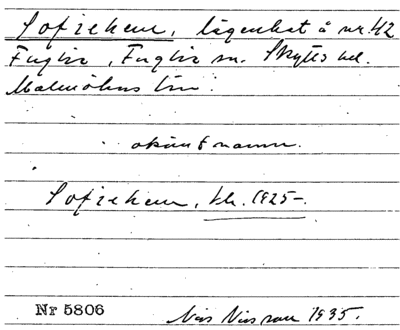 Sofiehem, lägenhet å nr. 42
Fuglie, Fuglie sn. Skytts hd.
Malmöhus län.
okänt namn.
Sofiehem, kk. 1925-.
Nr 5806
Nils Nilsson 1935.